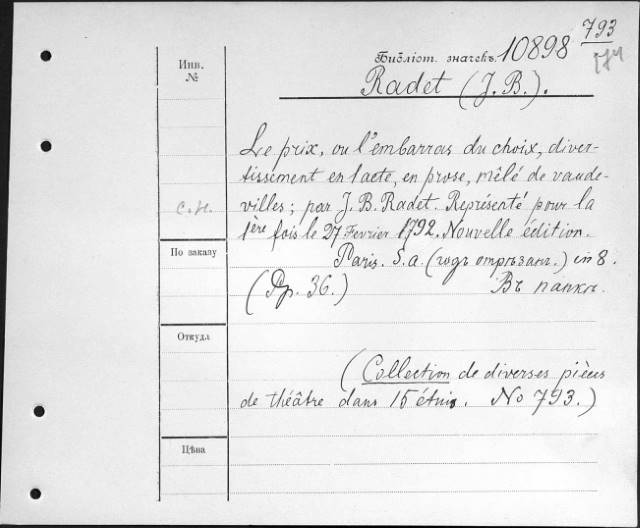 793
Инв.
№
Библіот. значекъ. 10898
Radet (J. B.).
Le prix, ou l'embarras du choix, diver-
tissement en 1 acte, en prose, mêlé de vaude-
с.н.
villes; par J. B. Radet. Représenté pour la
1ère fois le 27 Fevrier 1792. Nouvelle édition.
По заказу
Paris. S. a. (годъ отрѣзанъ.) in 8.
(Pp. 36.) Въ папкѣ.
Откуда
(Collection de diverses pièces
de théâtre dans 15 étuis. No 793.)
Цѣна